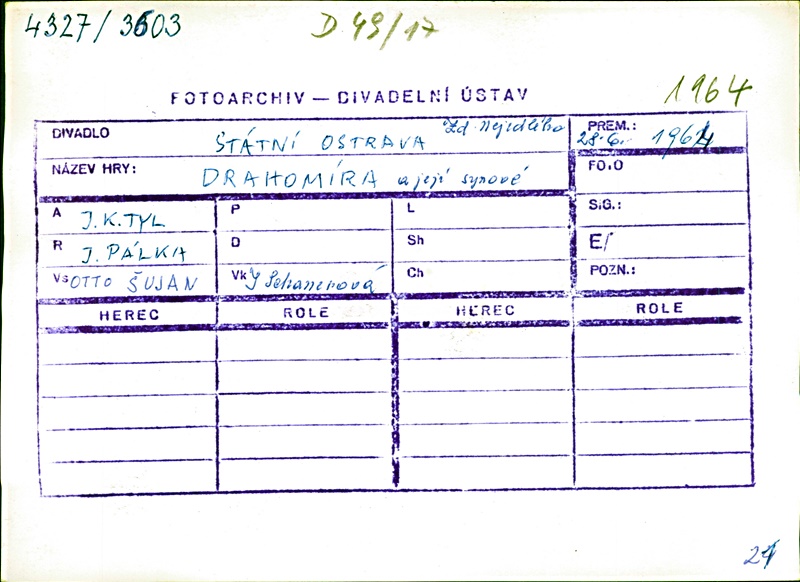 4327/3603
D 49/17
1964
FOTOARCHIV — DIVADELNÍ ÚSTAV
DIVADLO STÁTNÍ OSTRAVA Zd. Nejedlého
PREM.: 28.6. 1964
NÁZEV HRY: DRAHOMÍRA a její synové
FOTO
A J.K. TYL
P
L
SIG.:
R J. PÁLKA
D
Sh
E/
Vs OTTO ŠUJAN
Vk J Schanerová
Ch
POZN.:
HEREC ROLE HEREC ROLE